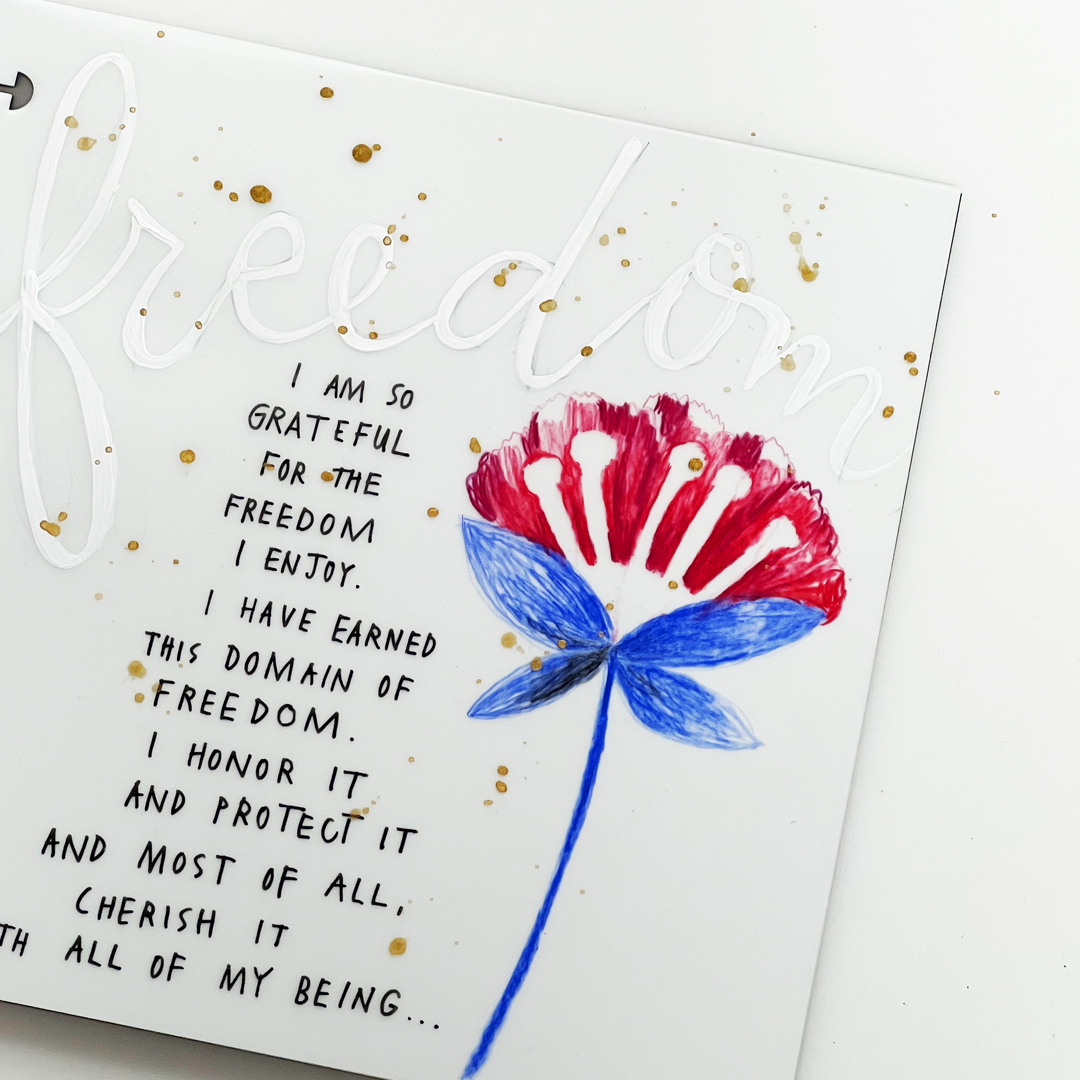 freedom
I AM SO
GRATEFUL
FOR THE
FREEDOM
I ENJOY.
I HAVE EARNED
THIS DOMAIN OF
FREEDOM.
I HONOR IT
AND PROTECT IT
AND MOST OF ALL,
CHERISH IT
TH ALL OF MY BEING...